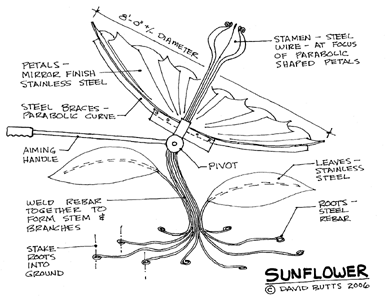 8'-0" +/- DIAMETER
STAMEN - STEEL
WIRE - AT FOCUS
OF PARABOLIC
SHAPED PETALS
PETALS -
MIRROR FINISH
STAINLESS STEEL
STEEL BRACES -
PARABOLIC CURVE
AIMING
HANDLE
PIVOT
LEAVES -
STAINLESS
STEEL
WELD REBAR
TOGETHER TO
FORM STEM &
BRANCHES
ROOTS -
STEEL
REBAR
STAKE
ROOTS
INTO
GROUND
SUNFLOWER
© DAVID BUTTS 2006